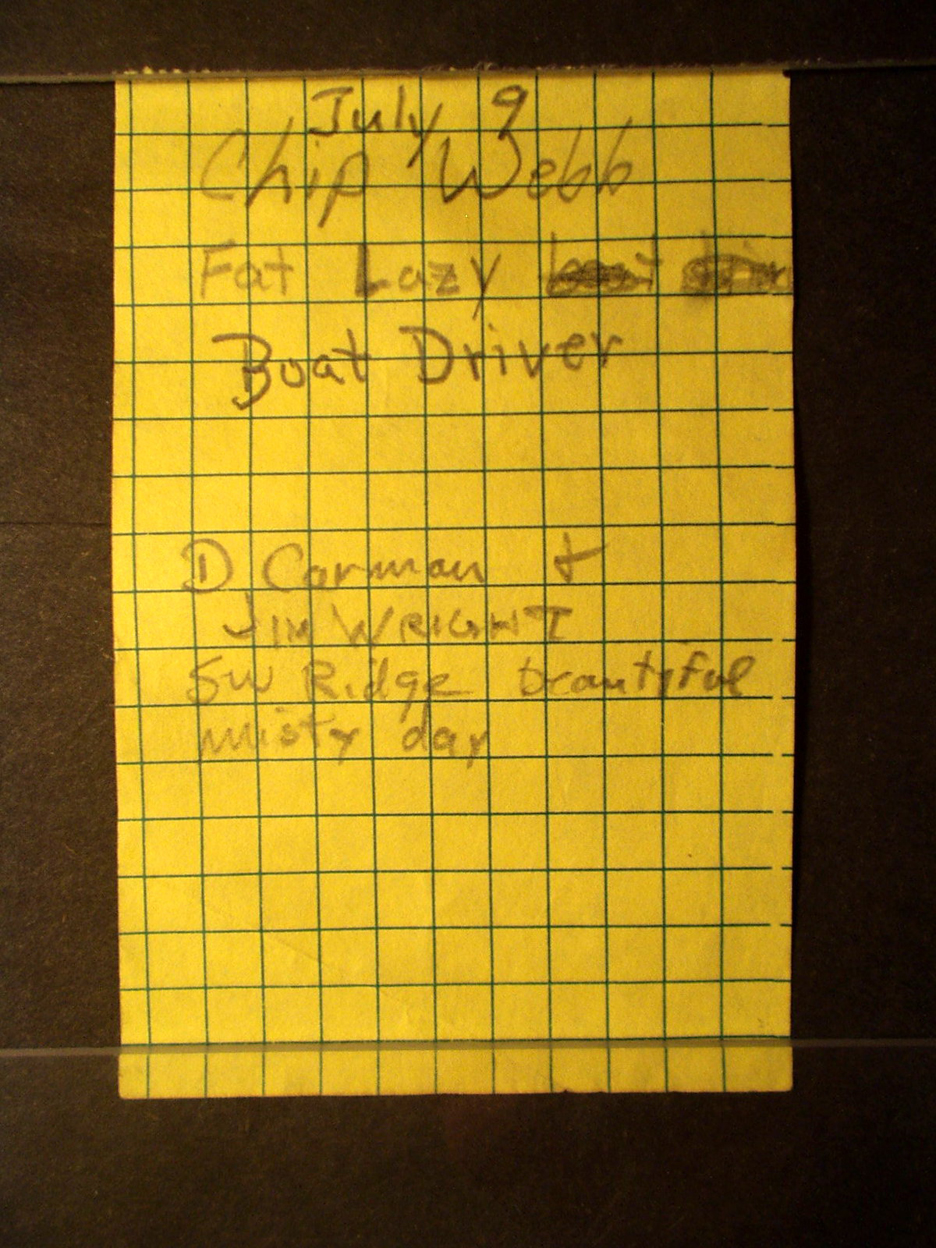 July 9
Chip Webb
Fat Lazy
Boat Driver
D Carman +
JIM WRIGHT
SW Ridge beautiful
misty day